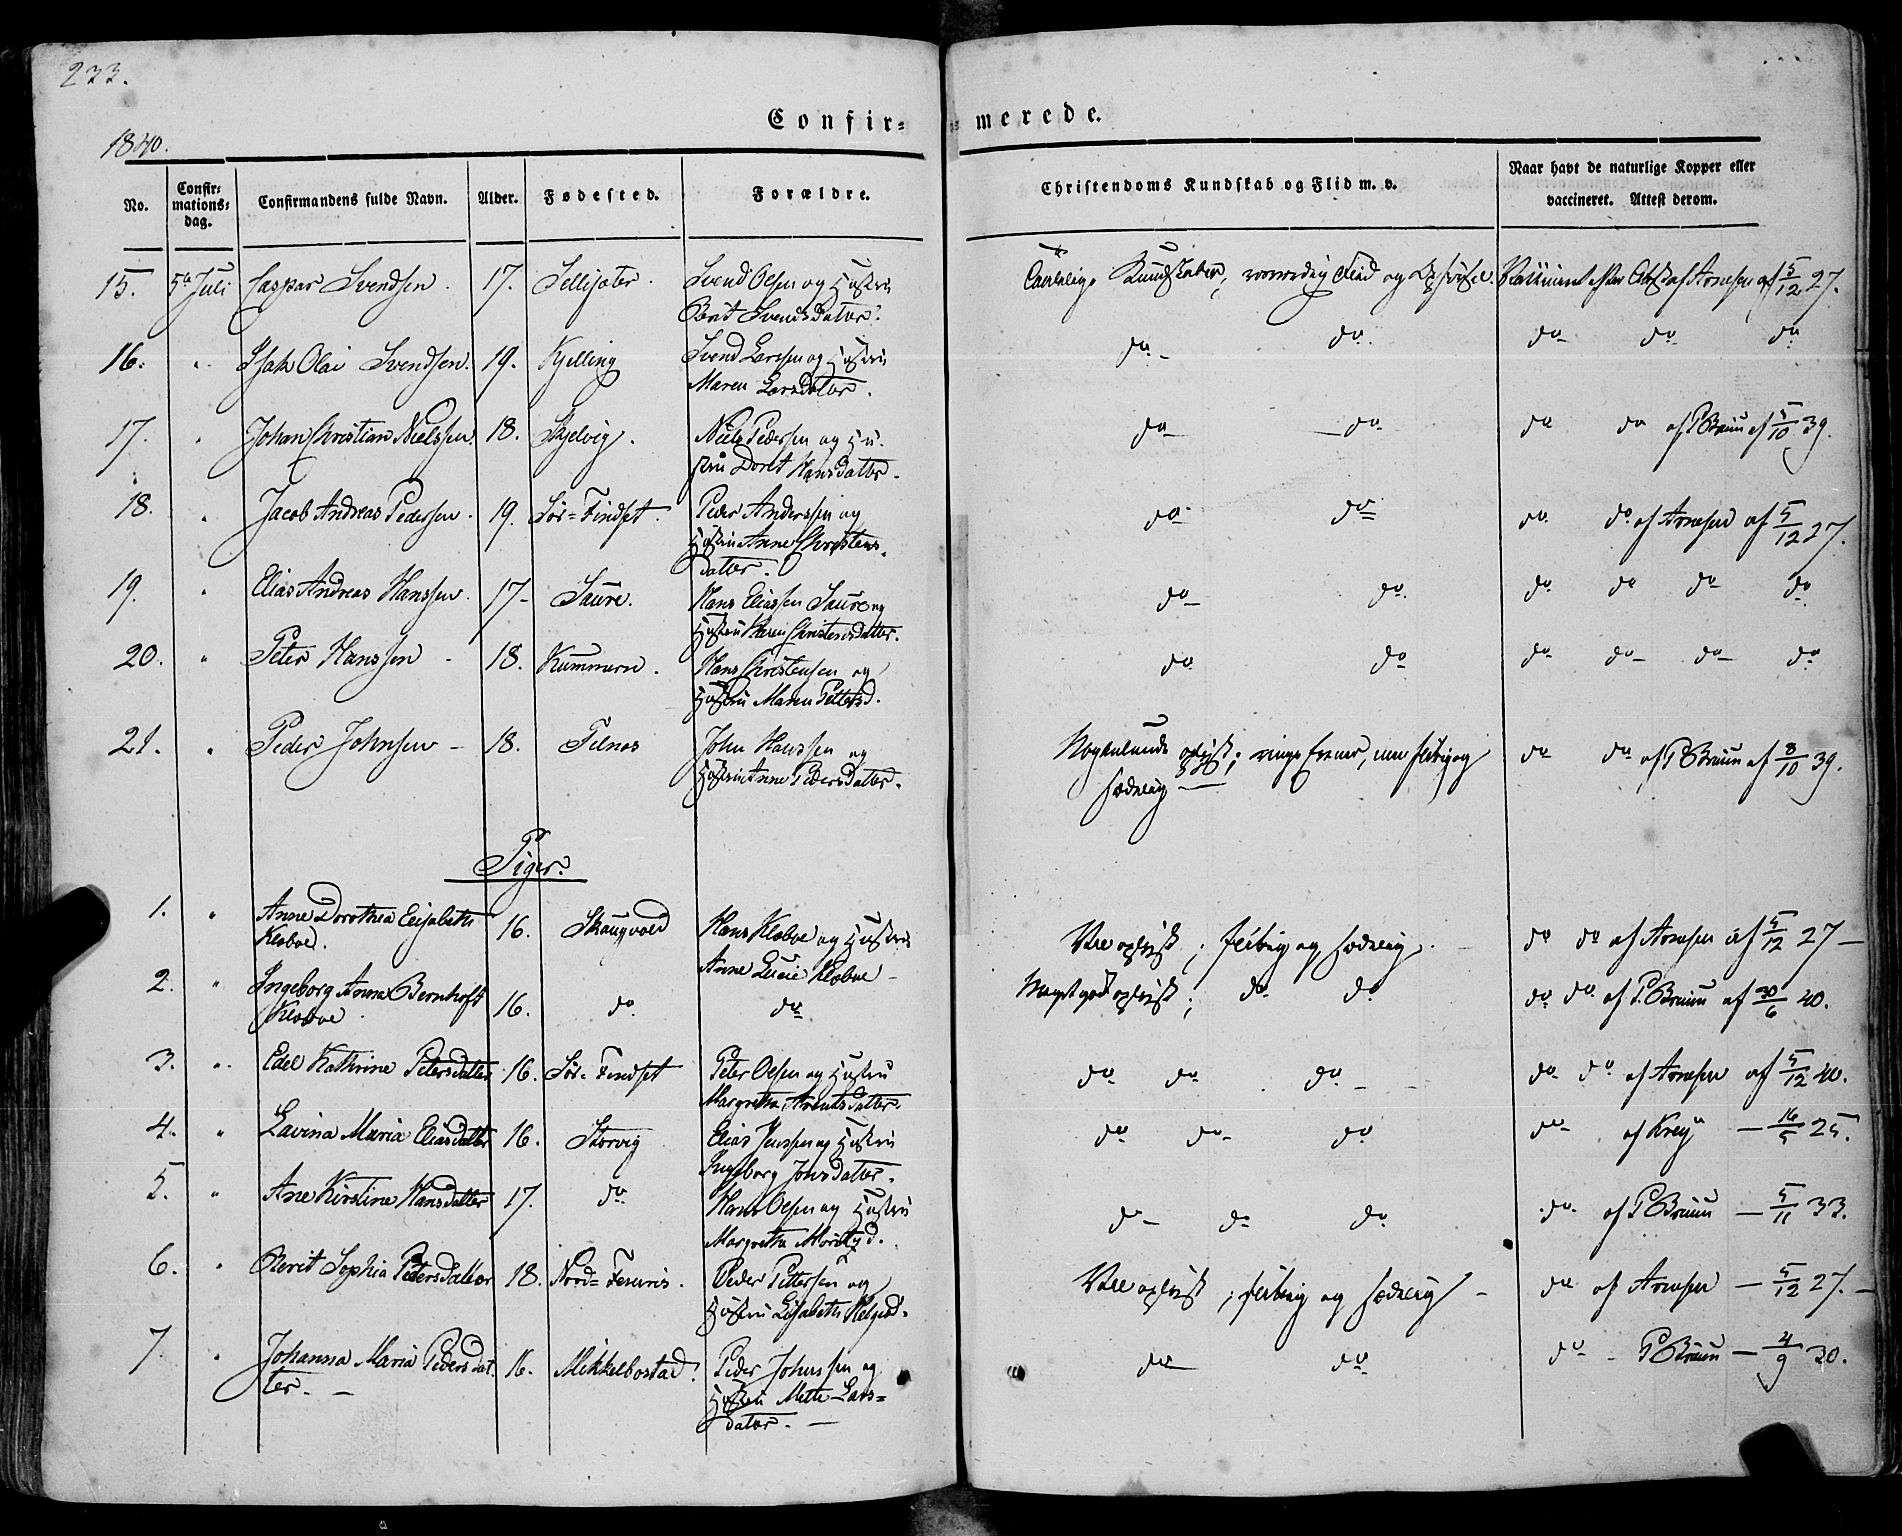 233.
Confir- merede.
1840.
No. Confirmationsdag. Confirmandens fulde Navn. Alder. Fødested. Forældre. Christendoms Kundskab og Flid m. v. Naar havt de naturlige Kopper eller vaccineret. Attest derom.
15. 5te Juli Caspar Svendsen. 17. Sellisater. Svend Olsen og Hustru Kundskaber, og Vaccineret efter Attest af Arnesen af 5/12 27.
Berit Svendsdatter.
16. " Isak Olai Svendsen. 19. Kjelling Svend Larssen og Hustru do do. do do do
Maren Larsdatter.
17. " Johan Christian Nielssen. 18. Skjelvig. Niels Pedersen og Hu- do do do do af P Bruun af 5/10 39.
stru Doret Hansdatter.
18. " Jacob Andreas Pedersen. 19. Sör=Findset. Peder Anderssen og do do do do af Arnesen af 5/12 27.
Hustru Anne Christens-
datter.
19. " Elias Andreas Hanssen. 17 Saure. Hans Eliassen Saure og do do. do do do do
Hustru Maren Christensdatter.
20. " Peter Hanssen 18. Kummern. Hans Christensen og do do do do do do
Hustru Maren Petersd.
21. " Peder Johnsen 18. Tilnes John Hanssen og Nogenlunde oplyst; ringe Evner, men flittig og do do af P Bruun af 8/10 39.
Hustru Anne Pedersdatter. sædelig
Piger.
1. " Anne Dorothea Elisabeth 16. Skaugvold Hans Kloboe og Hustru Vel oplyst; flittig og sædelig. do do af Arnesen af 5/12 27
Kloboe. Anne Lucie Kloboe
2. " Ingeborg Anna Bernhoft 16. do do Meget godt oplyst; do do do do af P. Bruun af 30/6 40.
Kloboe
3. " Edel Kathrine Petersdatter 16. Sör=Findset Peter Olsen og Hustru do do do do do af Arnesen af 5/12 40.
Margretha Arentsdatter.
4. " Lavina Maria Eliasdatter 16. Storvig Elias Jenssen og Hustru do do do do af Krey 16/5 25.
Ingeborg Jonsdatter.
5. " Ane Kirstine Hansdatter 17. do Hans Olsen og Hustru do do do do af P Bruun 5/11 33.
Margretha
6. " Berit Sophia Pedersdatter 18. Nord= Peder Pettersen og Vel oplyst; flittig og sædelig do af Arnesen 5/12 27.
Hustru Elisabeth
7. " Johanna Maria Pedersdat- 16. Mikkelbostad. Peder Johnssen og do do do P Bruun 4/9 30.
ter. Hustru Mette Lars=
datter.